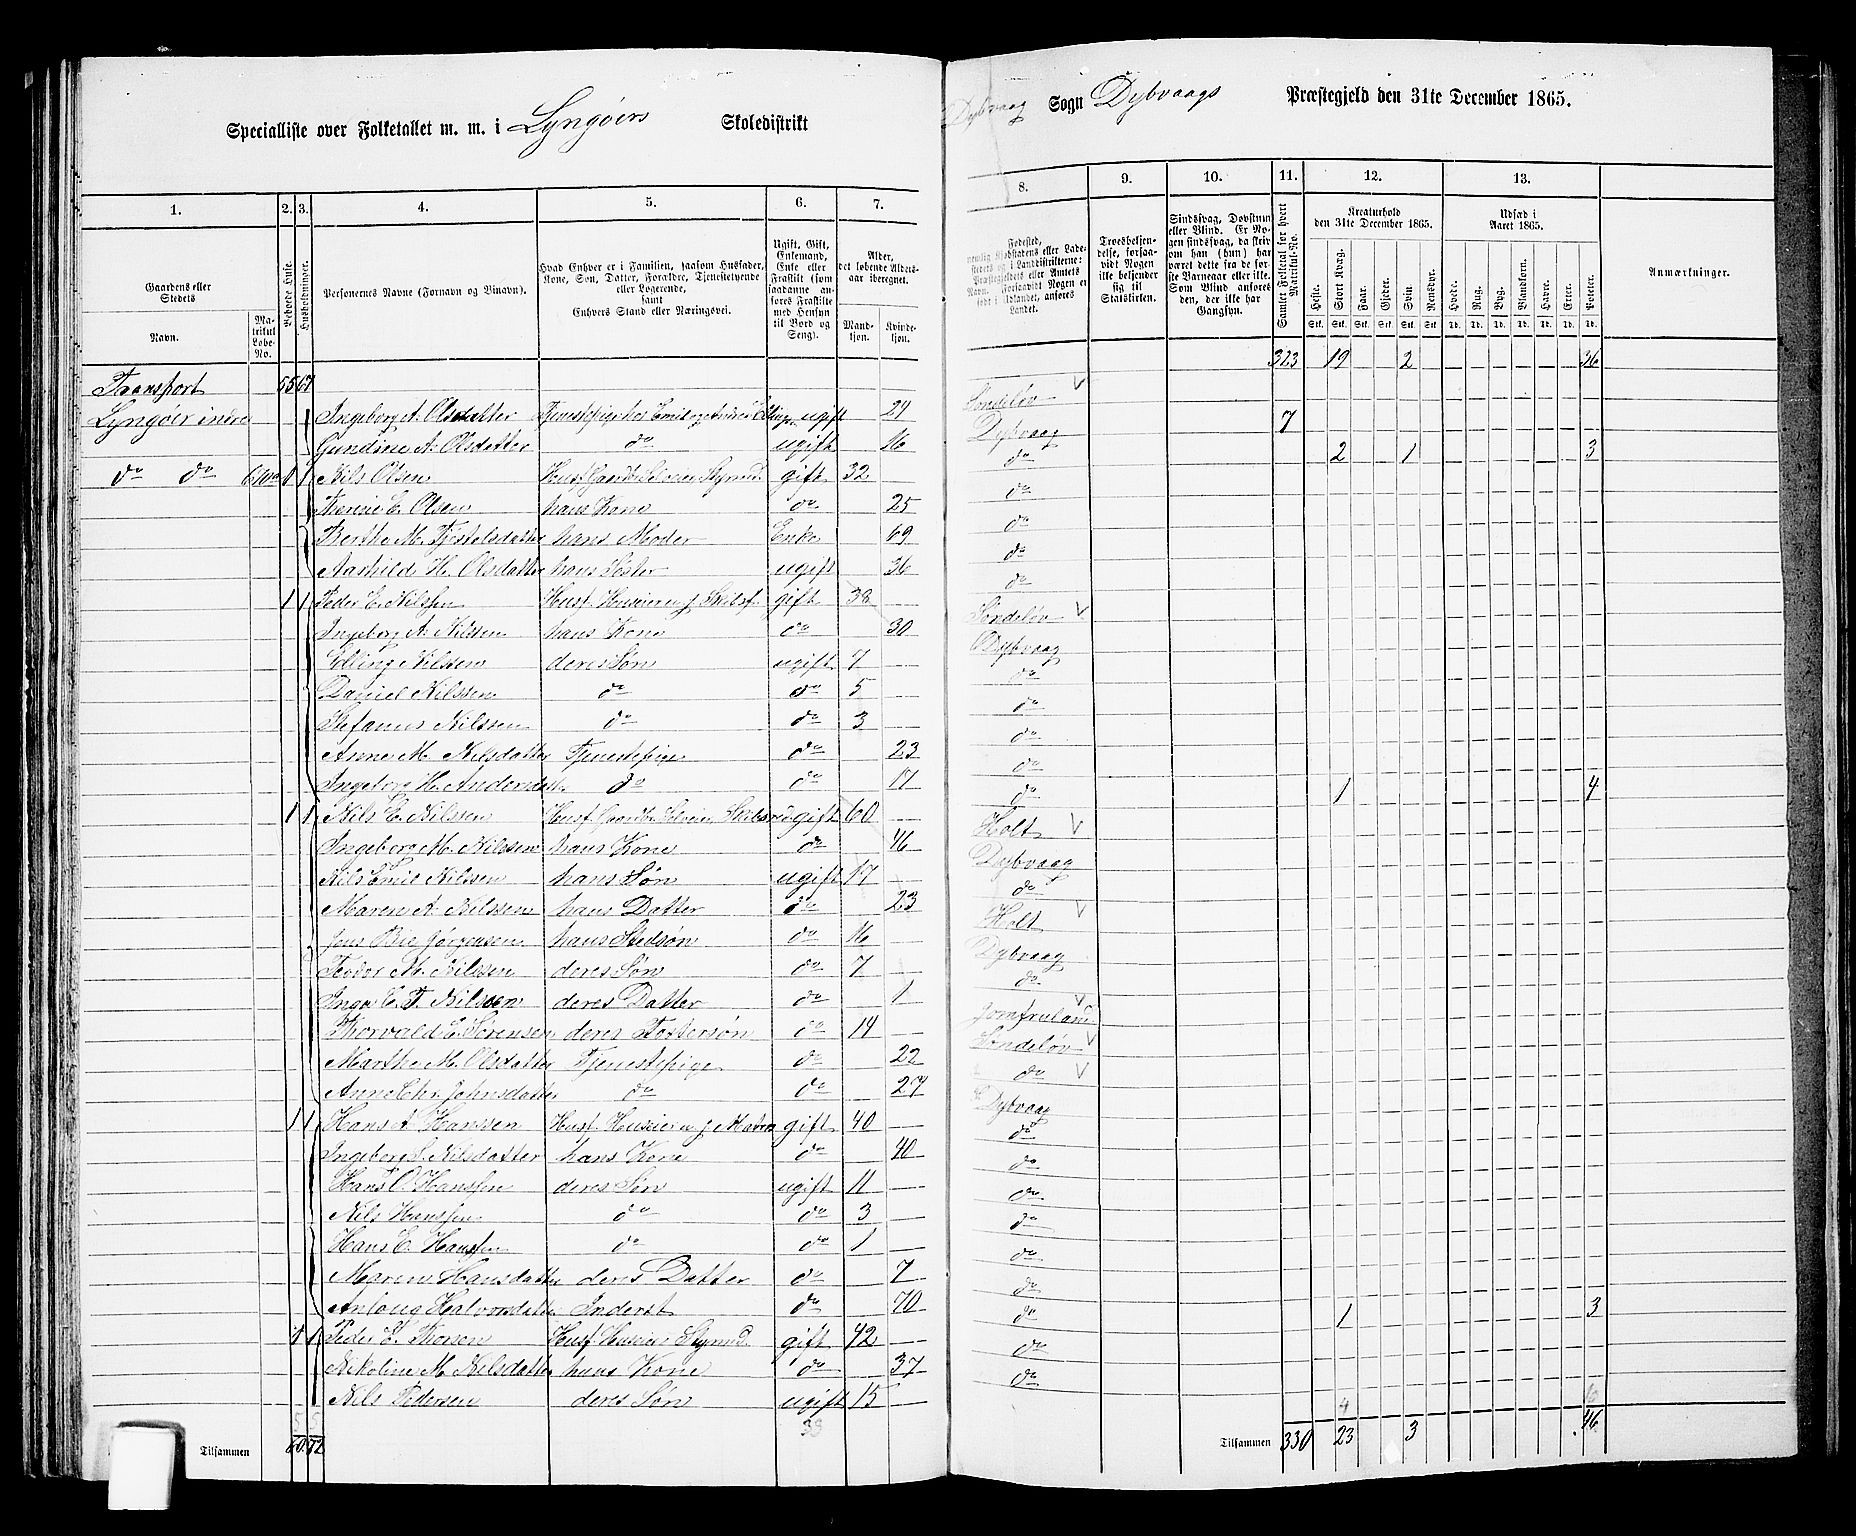 Specialliste over Folketallet m. m. i Lyngøers Skoledistrikt
Dybvaag Sogn Dybvaags Præstegjeld den 31te December 1865.
1. 2. 3. 4. 5. 6. 7.
8. 9. 10. 11. 12. 13.
Gaardens eller Stedets
Navn.
Matrikul Løbe-No.
Beboede Huse.
Husholdninger.
Personernes Navne (Fornavn og Tilnavn).
Hvad Enhver er i Familien, saasom Husfader, Kone, Søn, Datter, Forældre, Tjenestetyende eller Logerende, samt Enhvers Stand eller Næringsvei.
Ugift, Gift, Enkemand, Enke eller Fraskilt (som saadanne anføres Fraskilte med Hensyn til Bord og Seng).
Alder, det løbende Aldersaar iberegnet.
Mandkjøn. Kvindekjøn.
Fødested,
Troesbekjendelse, forsaavidt Nogen ikke bekjender sig til Statskirken.
Sindssvag, Døvstum eller Blind. Er Nogen sindssvag, da skrives om han (hun) har været dette fra de første Barneaar eller ikke. Som Blind anføres den, der ikke har Gangsyn.
Samlet Folketal for hvert Matrikul-No.
Kreaturhold den 31te December 1865.
Udsæd i Aaret 1865.
Heste. Stort Kvæg. Faar. Gjeder. Svin. Rensdyr.
Hvede. Rug. Byg. Blandkorn. Havre. Erter. Poteter.
Anmærkninger.
Transport 55 67 323 19 2 36
Lyngøer indre Ingeborg A. Olsdatter ugift 24 Søndeløv
Gundine A. Olsdatter do ugift 16 Dybvaag 7
do do Nils Olsen gift 32 do 2 1 3
E. Olsen hans Kone do 25 do
Berthe M. hans Moder Enke 69 do
Aashild H. Olsdatter hans Søster ugift 36 do
1 1 Peder E. Nilssen Husf. Huseier gift 38 do
Ingeborg A. Nilssen hans Kone do 30 Søndeløv
Elling Nilssen deres Søn ugift 7 Dybvaag
Daniel Nilssen do do 5 do
Stefanus Nilssen do do 3 do
Anne M. Nilsdatter Tjenestepige do 23 do
Ingeborg H. do do 17 do
1 1 Nils E. Nilssen Husf. gift 60 do 1 4
Ingeborg M. Nilssen hans Kone do 46 Holt
Nils Emil Nilssen hans Søn ugift 17 Dybvaag
Maren A. Nilssen hans Datter do 23 do
Jens Bie Jørgensen hans Stedsøn do 16 Holt
Teodor M. Nilssen deres Søn do 7 Dybvaag
Inga E. T. Nilssen deres Datter do 1 do
Thorvald E. Sørensen deres Fostersøn do 14 Jomfruland
Marthe M. Olsdatter Tjenestepige do 22 Søndeløv
Anne Chr. Johnsdatter do do 27 do
1 1 Hans A. Hanssen Husf. Huseier gift 40 Dybvaag
Ingeborg S. Nilsdatter hans Kone do 40 do
Hans O. Hanssen deres Søn ugift 11 do
Nils Hanssen do do 3 do
Hans E. Hanssen do do 1 do
Maren Hansdatter deres Datter do 7 do
Halvorsdatter Inderst do 70 do
1 1 Peder Husf. Huseier Styrmd. gift 42 do 1 3
Nikoline M. Nilsdatter hans Kone do 37 do
Nils Pedersen deres Søn ugift 15 do
5 5 33 4
Tilsammen 60 72 Tilsammen 330 23 3 46